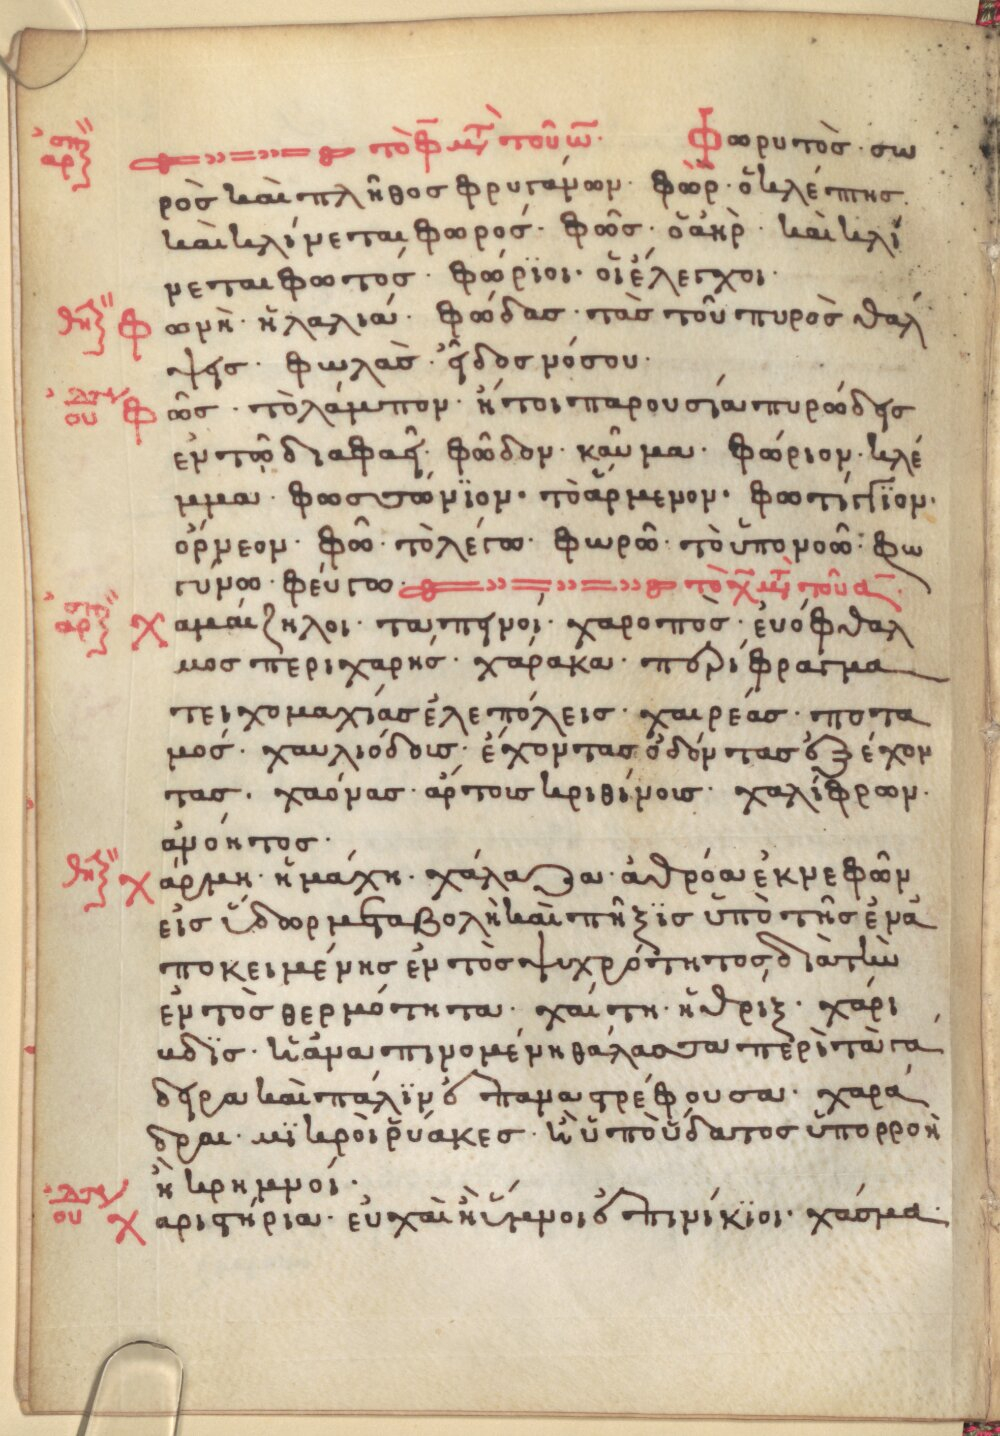 τὸ φ μετὰ τοῦ ω. Φωρυτὸς· σω
ρὸς καὶ πλῆθος φρυγάνων· φὼρ· ὁ κλέπτης.
καὶ κλίνεται φωρός· φῶς· ὁ ἀνὴρ· καὶ κλί
νεται φωτός· φώριοι· οἱ ἔλεγχοι·
φωνὴ· ἡ λαλιά· φῴδας· τὰς τοῦ πυρὸς θαλ
ψεις· φωλὰς· εἶδος νόσου·
φῶς· τὸ λάμπον· ἤτοι παρουσία πυρώδης
ἐν τῷ διαφανεῖ· φῶδον· καῦμα· φώριον· κλέ
μμα· φωσσώνιον· τὸ ἄρμενον· φωτίγγιον·
ὄρνεον· φῶ· τὸ λέγω· φωρῶ· τὸ ὑπονοῶ· φω
γύνω· φεύγω· τὸ χ μετὰ τοῦ α.
χαμαίζηλοι· ταπεινοί· χαροπὸς· εὐόφθαλ
μος περιχαρής· χάρακα· περίφραγμα
τειχομαχίας ἑλεπόλεις· χαιρέας· ποτα
μός· χαυλιόδοις· ἔχοντας ὀδόντας ἐξέχον
τας· χαόνας· ἄρτοις κριθίνοις· χαλίφρων·
ἀνόητος·
χάρμη· ἡ μάχη· χάλαζα· ἀθρόα ἐκ νεφῶν
εἰς ὕδωρ μεταβολὴ καὶ πῆξις ὑπὸ τῆς ἐνα
ποκειμένης ἐντὸς ψυχρότητος, διὰ τὴν
ἐντὸς θερμότητα· χαίτη· ἡ θρίξ· χάρι
υδις· ἡ ἀναπινομένη θάλασσα περὶ τὰ γά
δειρα καὶ πάλιν ἐπαναστρέφουσα· χαρά
δραι· μικροὶ ῥύακες· ἢ ὑπὸ ὕδατος ὑπορροὴ
ἢ κρημνοί·
χαριστήρια· εὐχαὶ ἢ ὕμνοι ἐπινίκιοι· χάσμα·